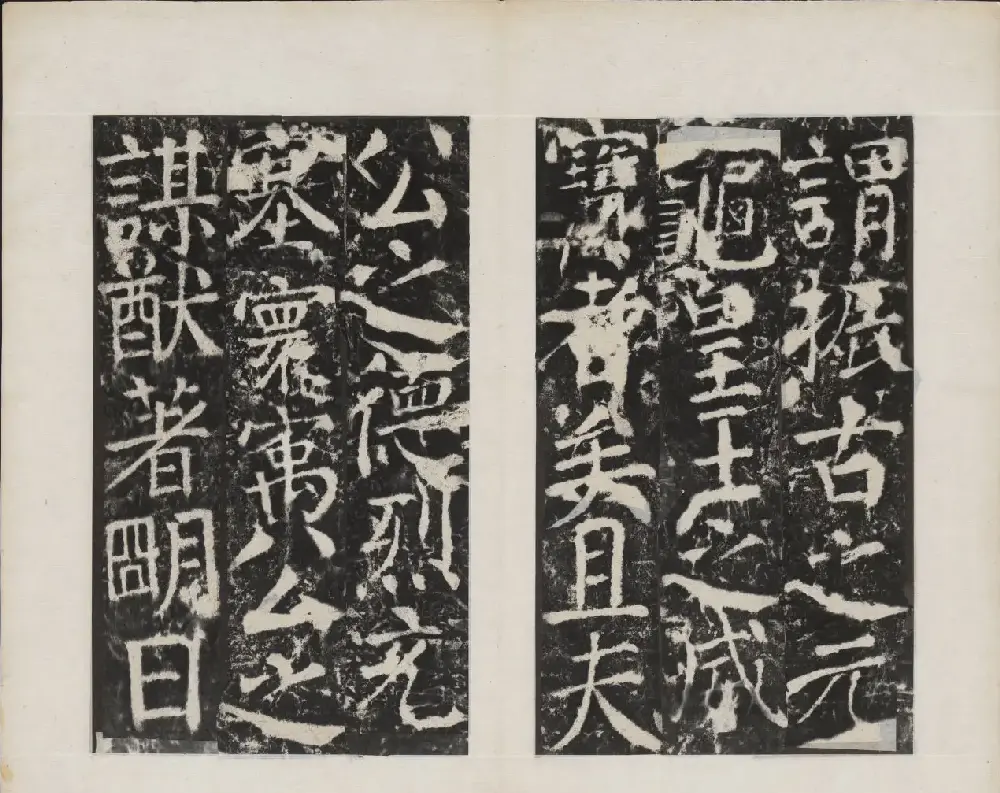 謂振古之元
龜皇王之
寶者矣且夫
公之德烈充
塞寰寓公之
謀猷著明日